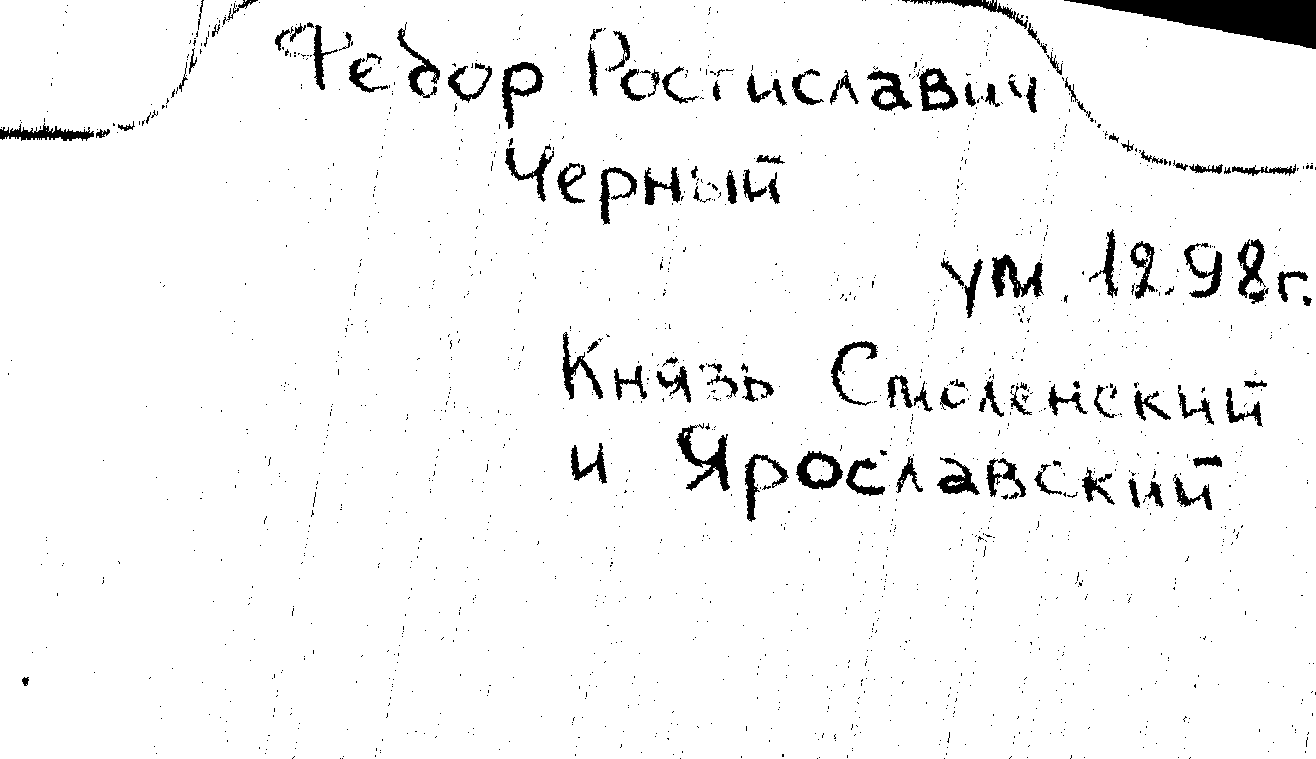 Федор Ростиславич
Черный
ум. 1298г.
Князь Смоленский
и Ярославский